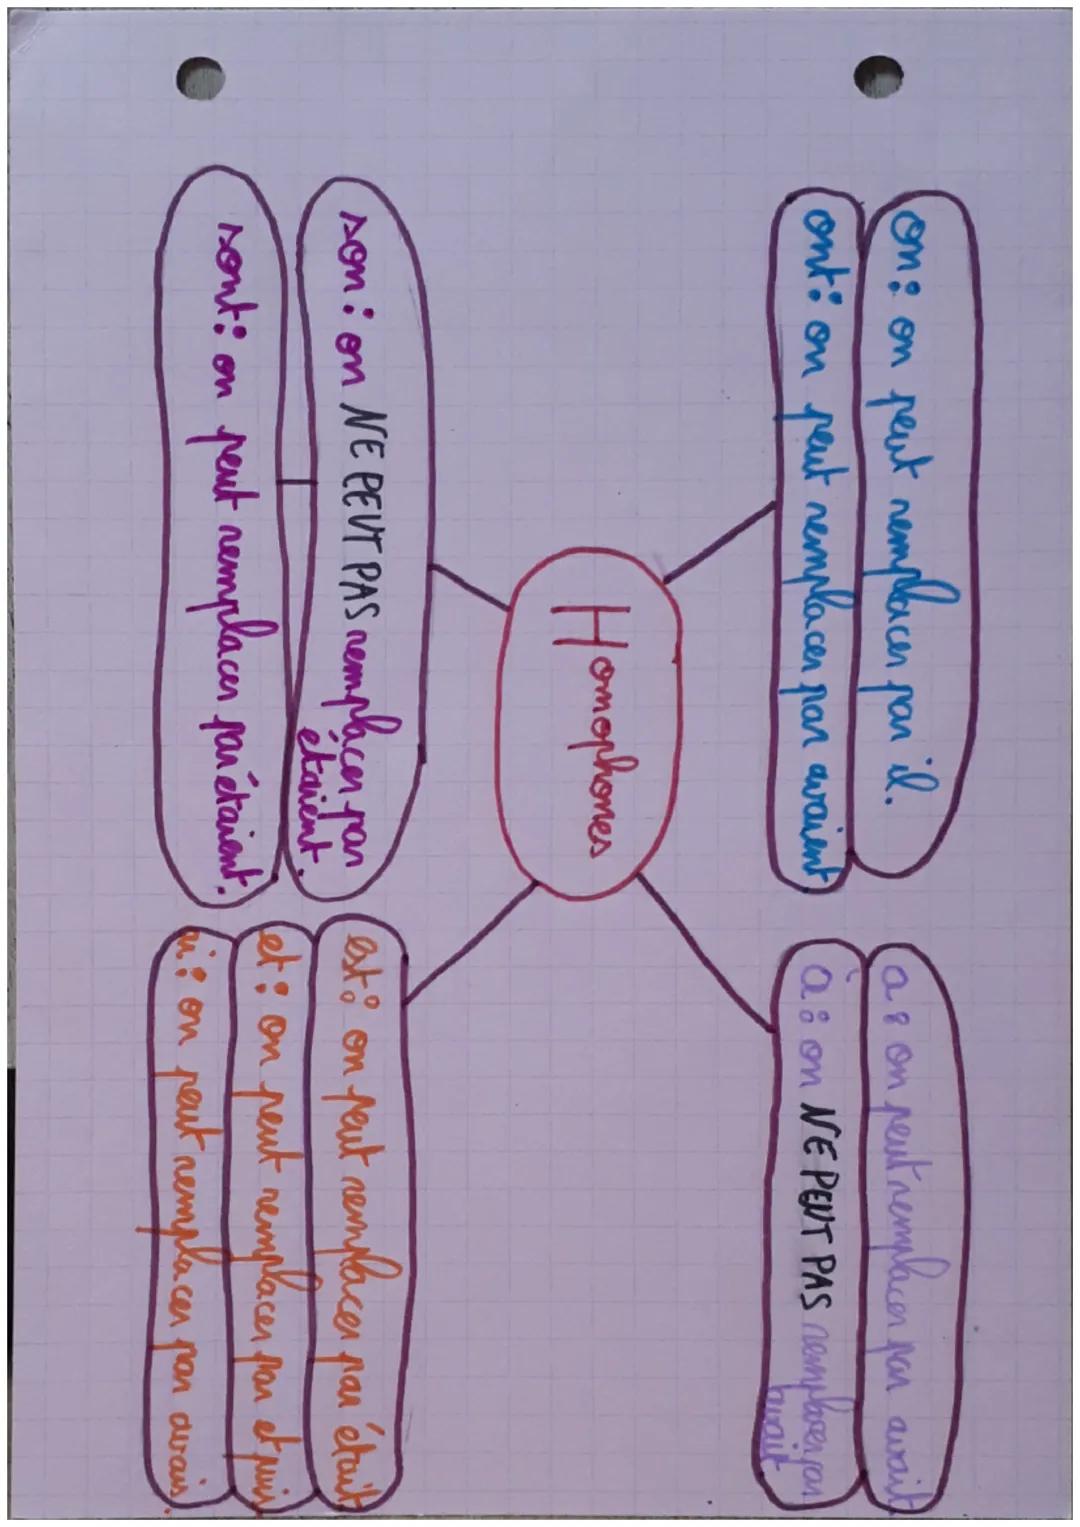 on : on peut remplacer par il.
ont : on peut remplacer par avaient
a : on peut remplacer par avait
à : on NE PEUT PAS remplacer par
avait
Homophones
son : on NE PEUT PAS remplacer par
étaient.
sont : on peut remplacer par étaient.
est : on peut remplacer par était
et : on peut remplacer par et puis
ai : on peut remplacer par avais.